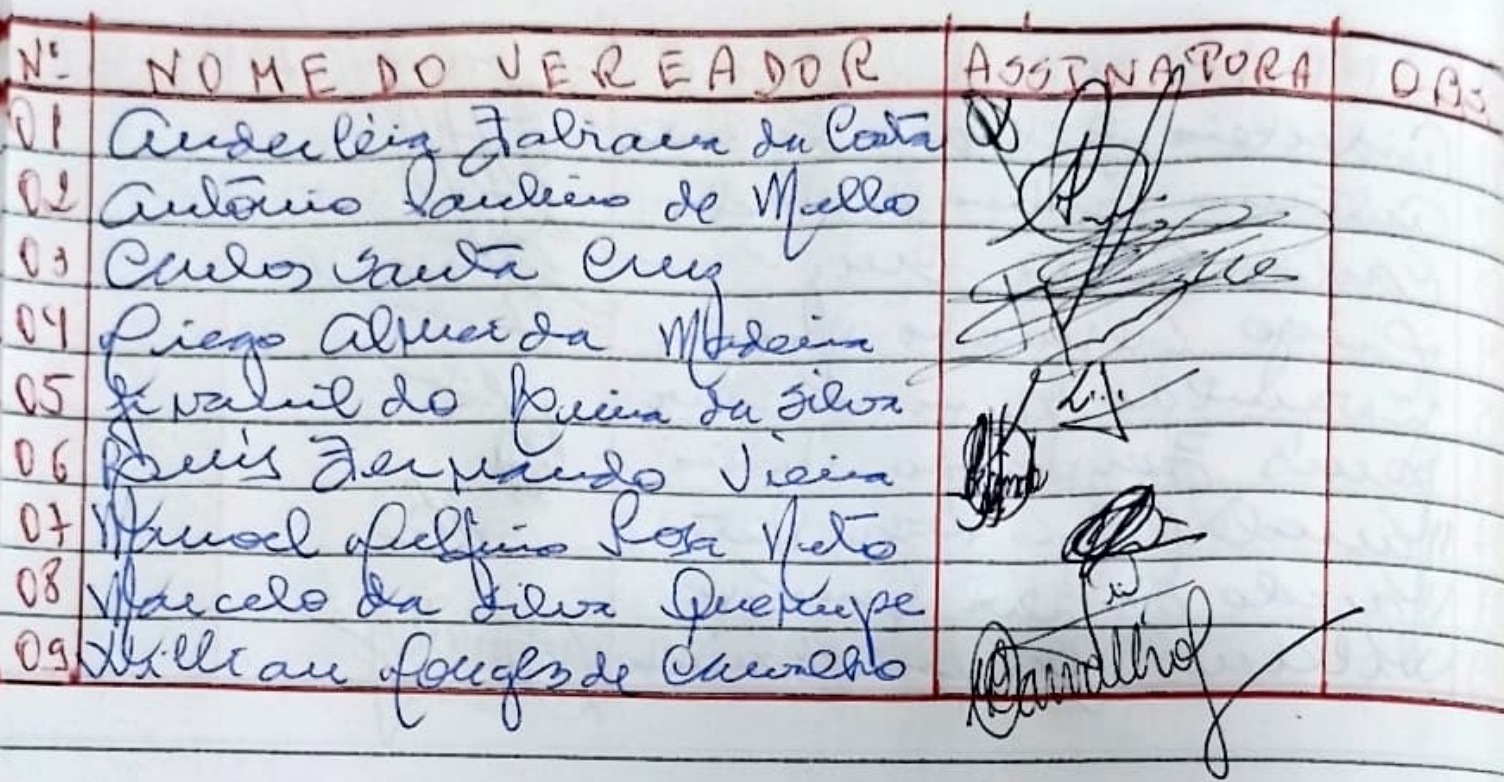 Nº NOME DO VEREADOR ASSINATURA OBS
01 Anderléia Fabiana da Costa
02 Antônio Paulino de Mello
03 Carlos Santa Cruz
04 Diego Almeida Madeira
05 da Silva
06 Luis Fernando Vieira
07 Manoel Delfino Rosa Neto
08 Marcelo da Silva
09 Willian de Carvalho Carvalho